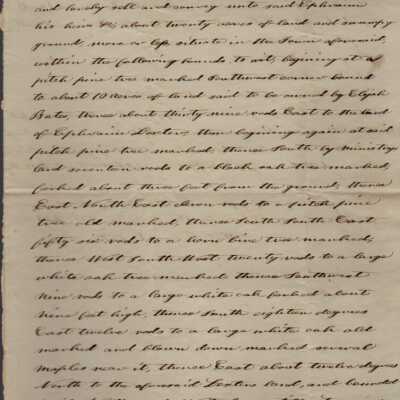 and hereby sell and convey unto said Ephraim
his heirs &c, about twenty acres of land and swampy
ground, more or less situate in the Town aforesaid,
within the following bounds, to wit, begining at a
pitch pine tree marked Southwest corner bound
to about 10 Acres of land said to be owned by Elijah
Bates, thence about thirty nine rods East to the land
of Ephraim, then begining again at said
pitch pine tree marked, thence South by Ministry
land seventen rods to a black oak tree marked,
forked about three feet from the ground, thence
East North East eleven rods to a pitch pine
tree old marked, thence South South East
fifty six rods to a horn bine tree marked,
thence West South West twenty rods to a large
white oak tree marked thence Southwest
Nine rods to a large white oak forked about
nine feet high, thence South eighteen degrees
East twelve rods to a large white oak old
marked and blown down, marked several
Maples near it, thence East about twelve degrees
North to the aforesaid land, and bounded